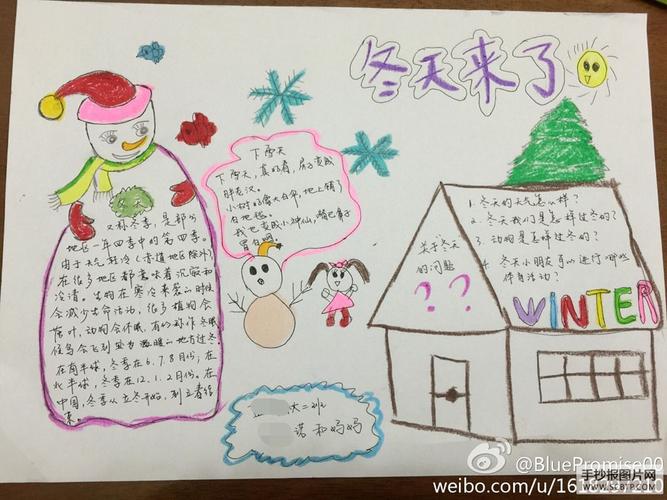 冬天来了
下雪天
下雪天，真好看，房子变成
胖老汉。
小树好像大白伞，地上铺了
白地毯。
我也变成小神仙，嘴巴鼻子
冒白烟。
冬天
又称冬季，是部分
地区一年四季中的第四季。
由于天气较冷（赤道地区除外）
在很多地区都意味着沉寂和
冷清。生物在寒冷来袭的时候
会减少生命活动，很多植物会
落叶，动物会休眠，有的称作冬眠
候鸟会飞到较为温暖的地方过冬
在南半球，冬季在6.7.8月份；在
北半球，冬季在12.1.2月份。在
中国，冬季从立冬开始，到立春结
束。
关于冬天
的问题
??
1. 冬天的天气怎么样？
2. 冬天我们是怎样过冬的？
3. 动物是怎样过冬的？
4. 冬天小朋友可以进行哪些
体育活动？
WINTER
大二班
诺和妈妈
@BluePromise00
weibo.com/u/16
手抄报图片网
www.SCBTP.COM